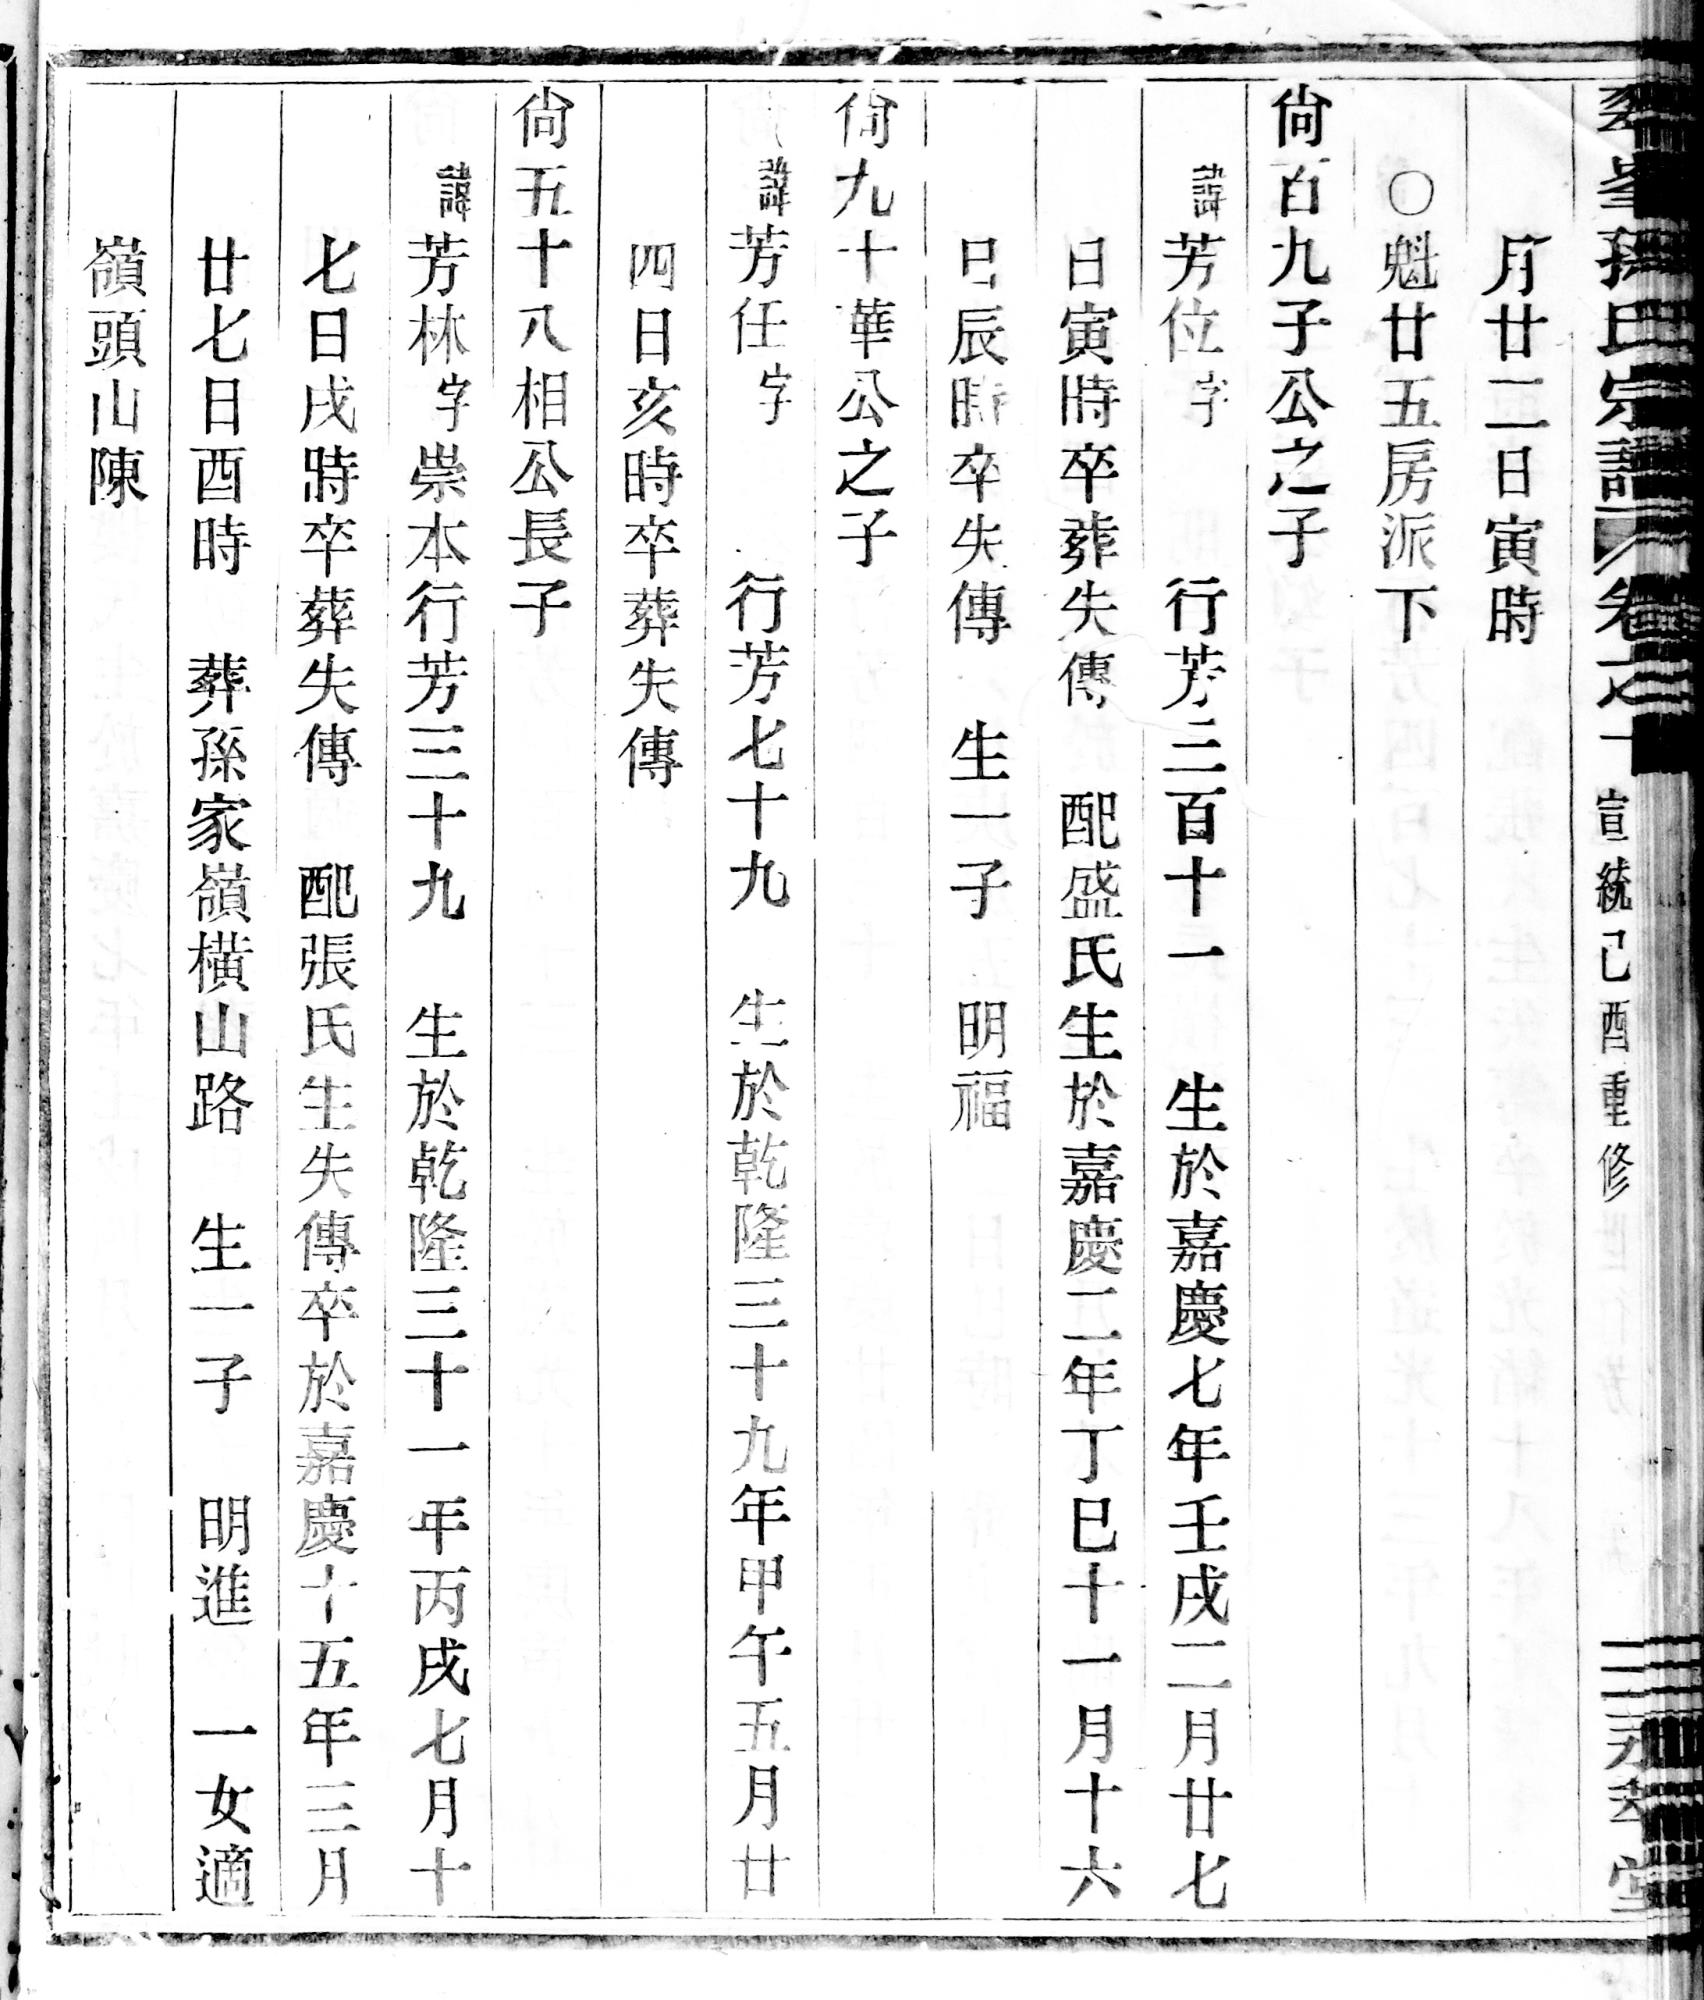 孫氏宗譜 卷之十 宣統己酉重修 永萃堂
月廿二日寅時
○魁廿五房派下
尙百九子公之子
諱芳位字 行芳三百十一 生於嘉慶七年壬戌二月廿七
日寅時卒葬失傳 配盛氏生於嘉慶二年丁巳十一月十六
日辰時卒失傳 生一子 明福
尙九十華公之子
諱芳任字 行芳七十九 生於乾隆三十九年甲午五月廿
四日亥時卒葬失傳
尙五十八相公長子
諱芳林字崇本行芳三十九 生於乾隆三十一年丙戌七月十
七日戌時卒葬失傳 配張氏生失傳卒於嘉慶十五年三月
廿七日酉時 葬孫家嶺橫山路 生一子 明進 一女適
嶺頭山陳